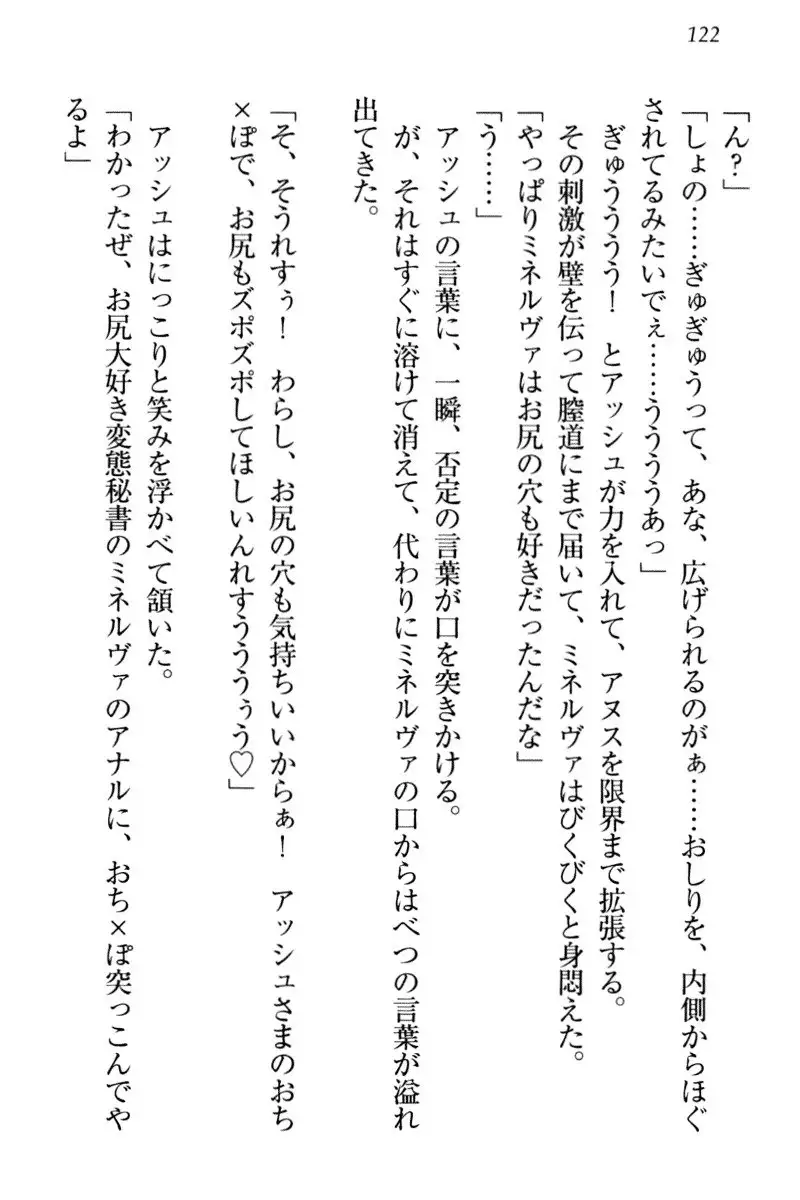 122
「ん？」
「しょの……ぎゅぎゅうって、あな、広げられるのがぁ……おしりを、内側からほぐ
されてるみたいでぇ……うううあっ」
ぎゅうううう！　とアッシュが力を入れて、アヌスを限界まで拡張する。
その刺激が壁を伝って膣道にまで届いて、ミネルヴァはびくびくと身悶えた。
「やっぱりミネルヴァはお尻の穴も好きだったんだな」
「う……」
アッシュの言葉に、一瞬、否定の言葉が口を突きかける。
が、それはすぐに溶けて消えて、代わりにミネルヴァの口からはべつの言葉が溢れ
出てきた。
「そ、そうれすぅ！　わらし、お尻の穴も気持ちいいからぁ！　アッシュさまのおち
×ぽで、お尻もズポズポしてほしいんれすうううぅう♡」
アッシュはにっこりと笑みを浮かべて頷いた。
「わかったぜ、お尻大好き変態秘書のミネルヴァのアナルに、おち×ぽ突っこんでや
るよ」